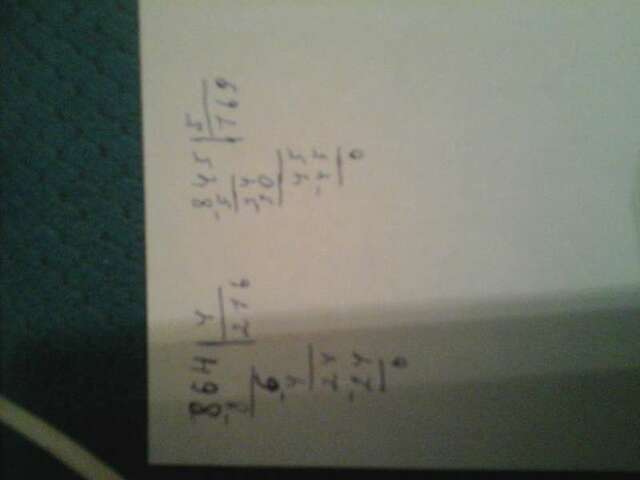 864 | 4
- 8 | 216
6
- 4
24
- 24
0
845 | 5
- 5 | 169
34
30
45
- 45
0